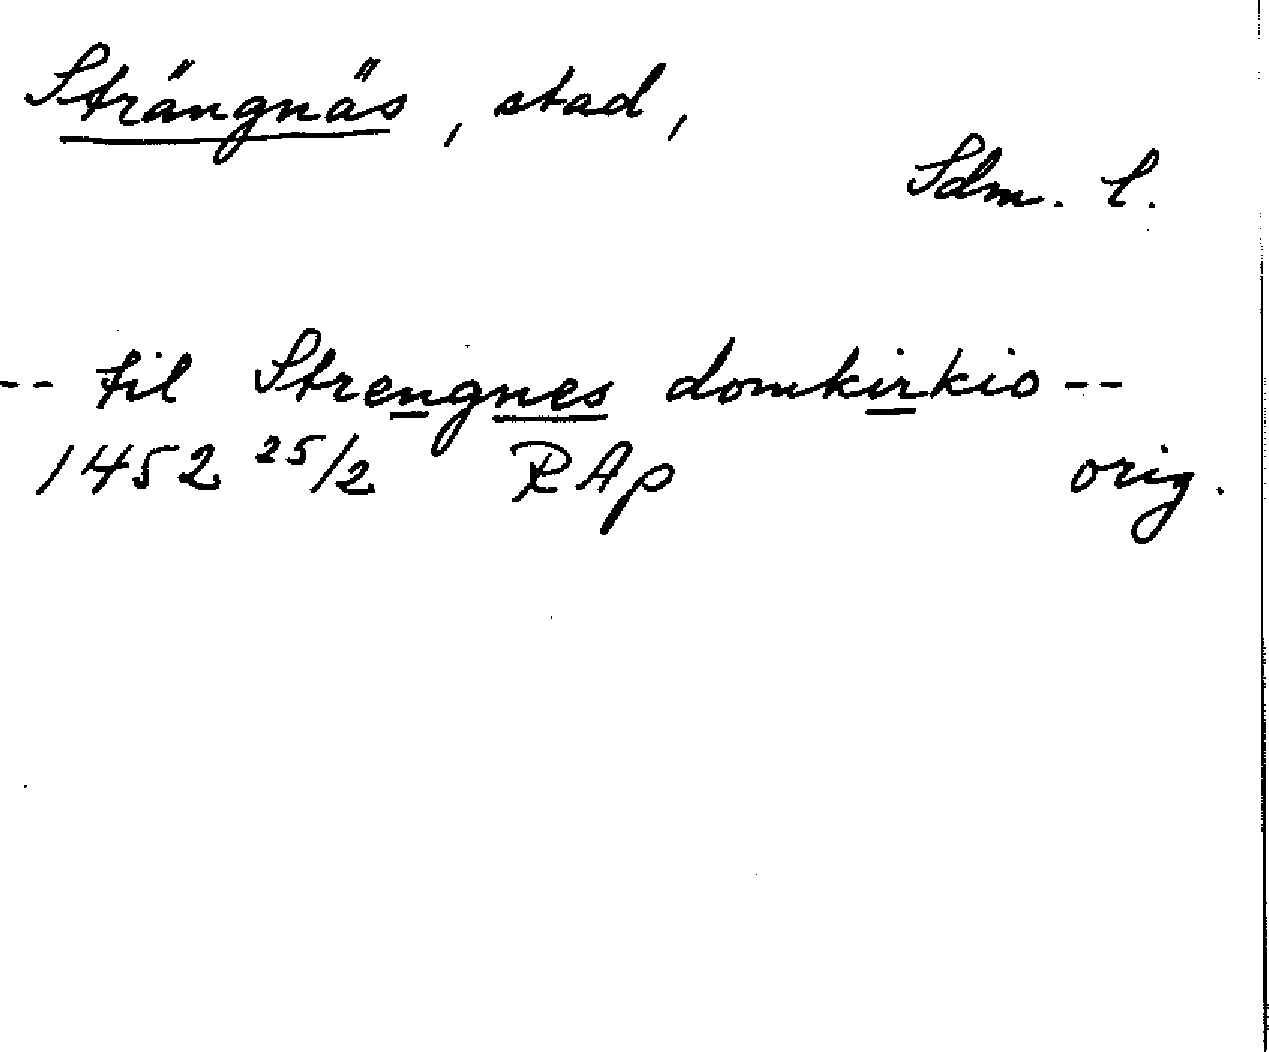 Strängnäs, stad,
Sdm. l.
-- til Strengnes domkirkio --
1452 25/2 RAp orig.